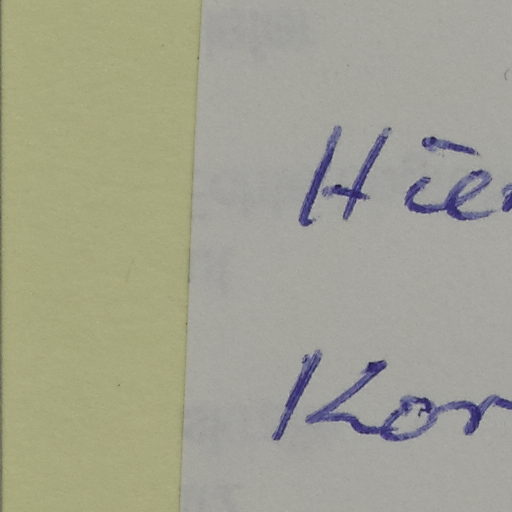 Hier
Kor